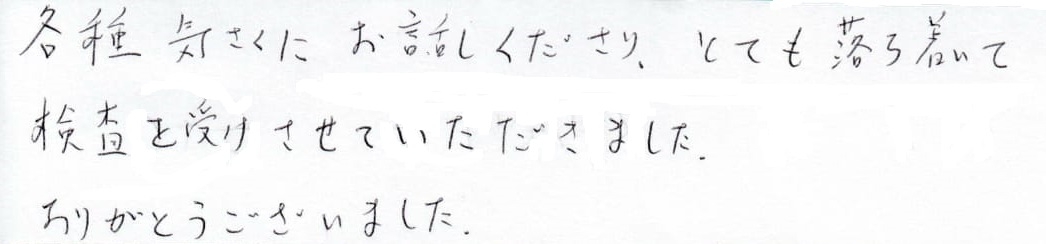 各種 気さくに お話しくださり、とても落ち着いて
検査を受けさせていただきました.
ありがとうございました.